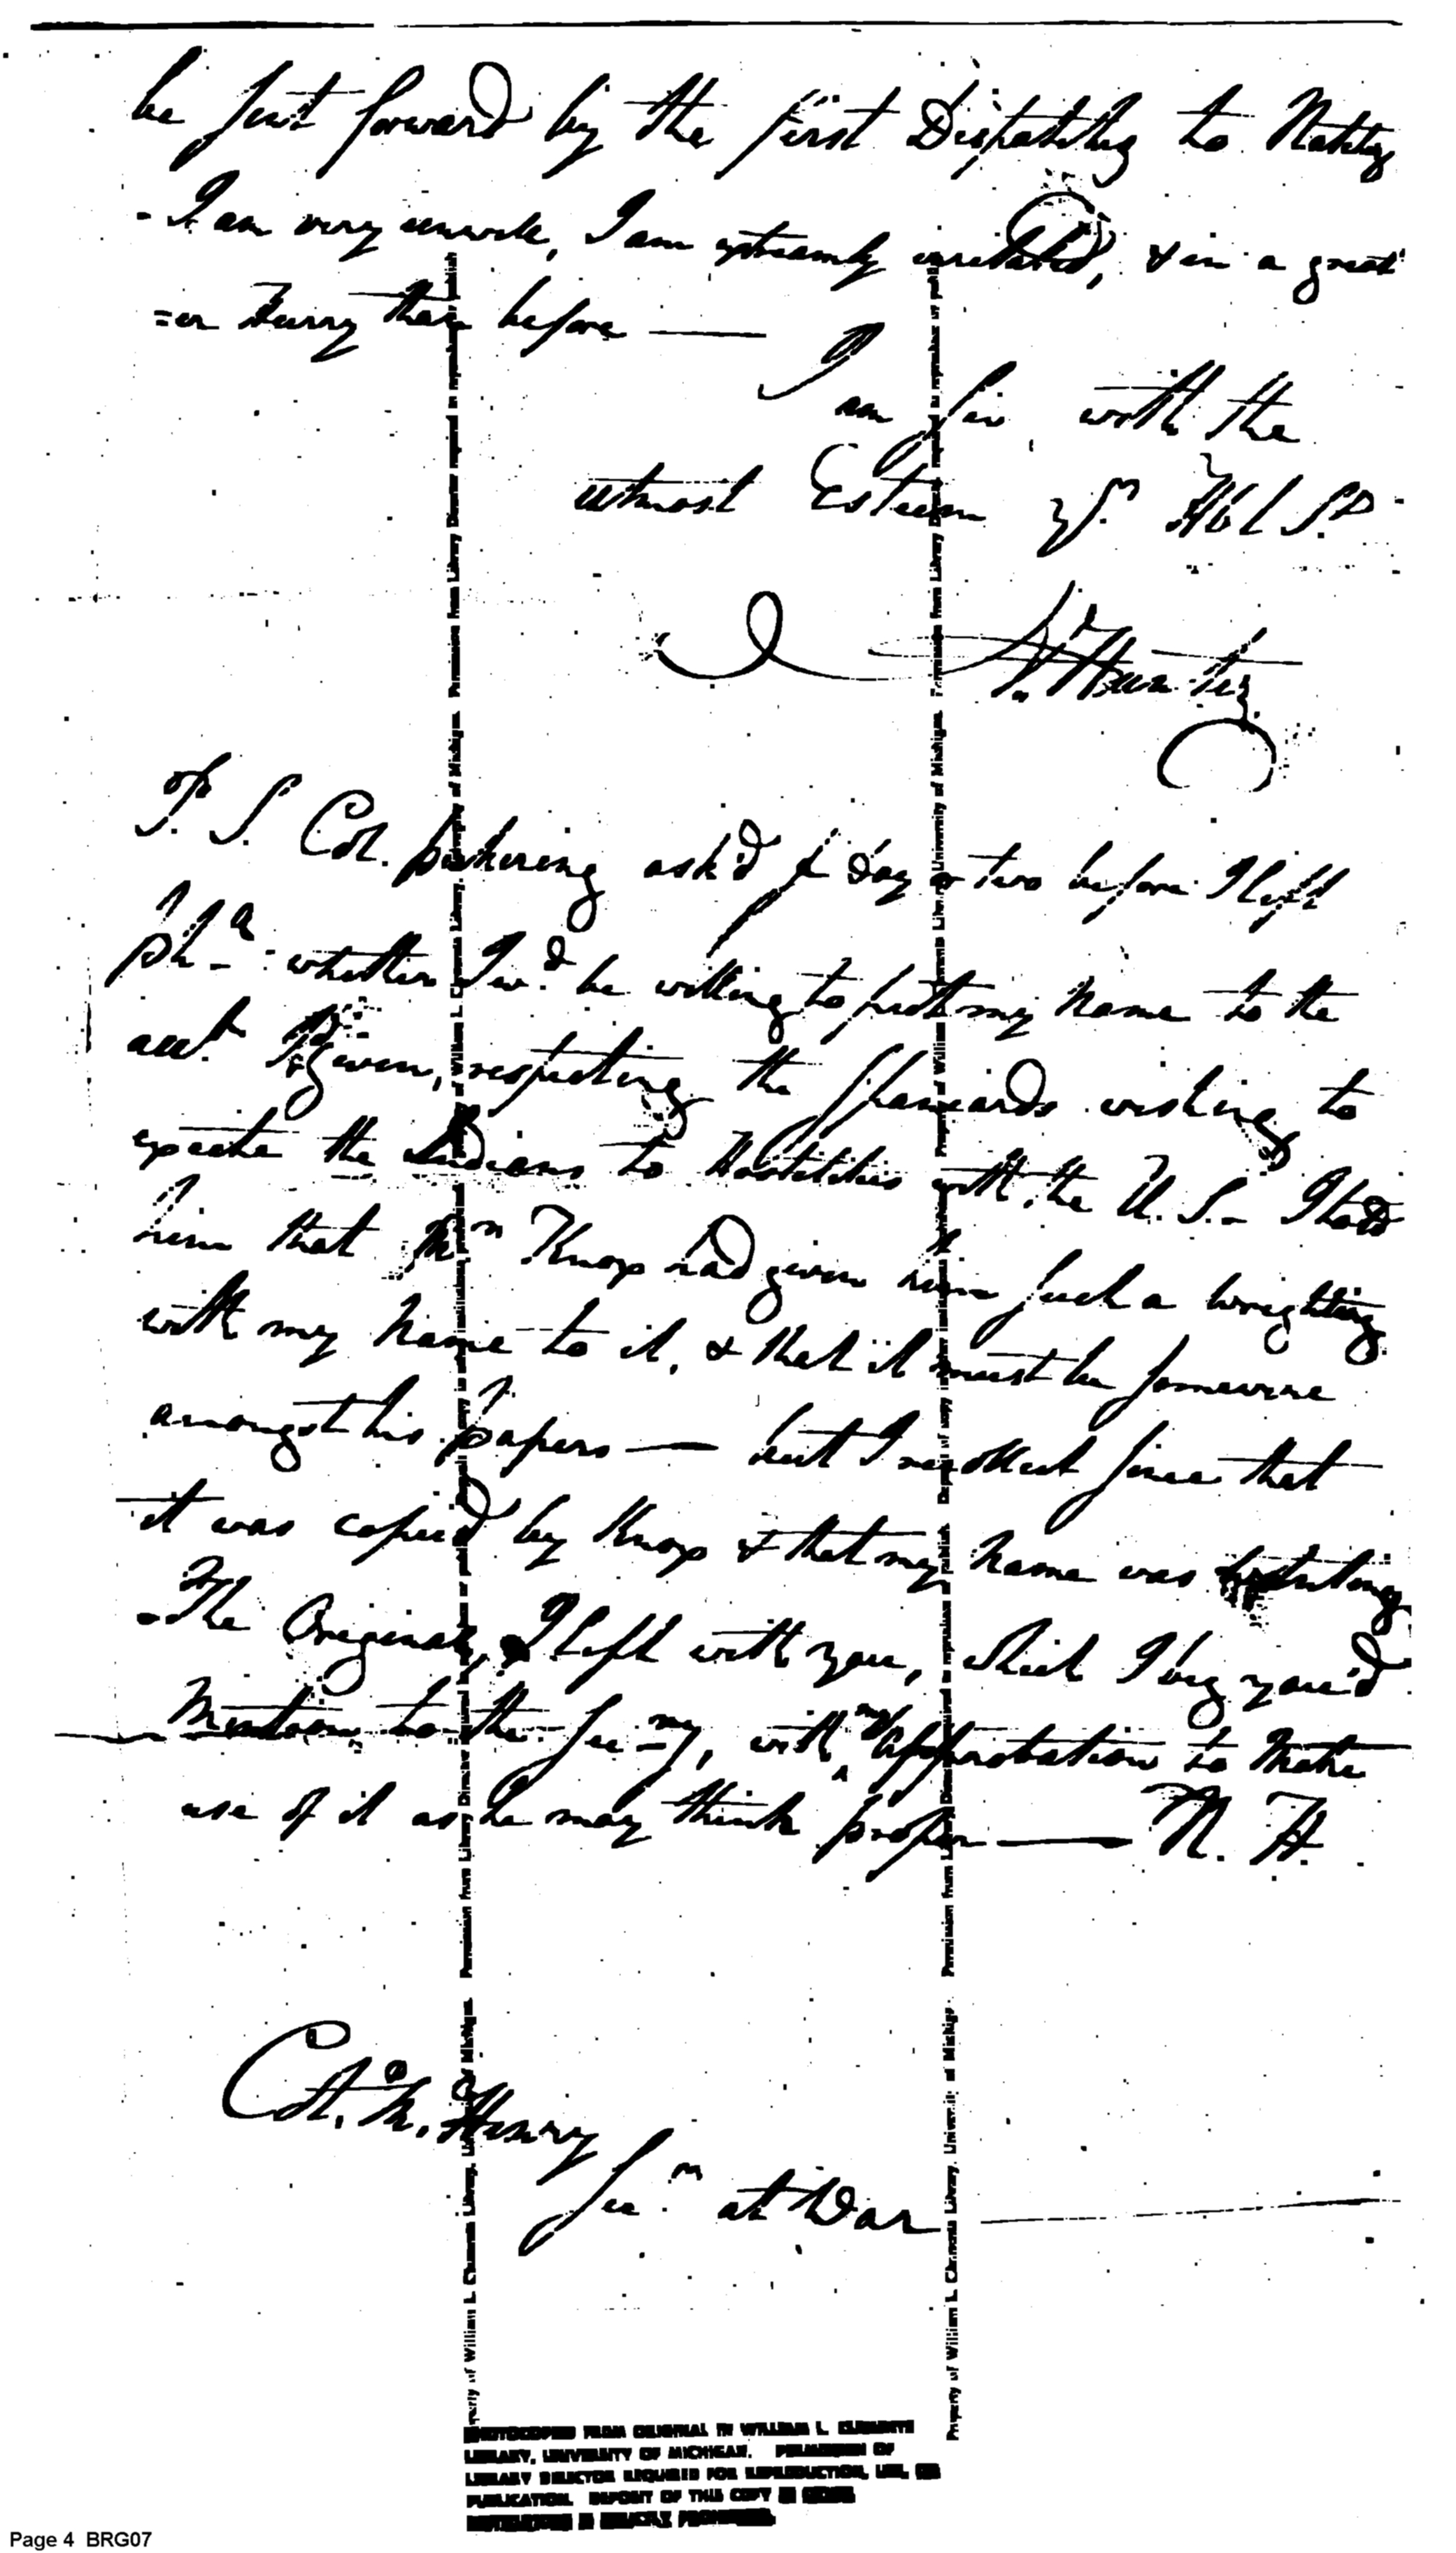 be sent forward by the first Dispatches to Natchez
- I am very unwell, I am extreamly irretated, & in a great
=er Hurry than before —
I am Sir, with the
utmost Esteem Yr. Hbl St.
P. S. Col. pickering ask'd a day or two before I left
Pha. whether I wd. be willing to put my name to the
acct. given, respecting the Spaniards wishing to
expcite the Indians to Hostilities with the U.S. - I told
him that Knox had given him such a wrighting
with my Name to it, & that it must be somewere
amongst his papers — but I recollect since that
it was copied by Knox & that my name was
- The Original, I left with you, which I beg you'd
Mention to the Secry, with my approbation to make
use of it as he may think proper — N. H.
Col. Mc. Henry
Secry at War
Property of William L. Clements Library, University of Michigan. Permission from Library Director required
Property of William L. Clements Library, University of Michigan. Permission from Library Director required
PHOTOCOPIED FROM ORIGINAL IN WILLIAM L. CLEMENTS
LIBRARY, UNIVERSITY OF MICHIGAN. PERMISSION OF
LIBRARY DIRECTOR REQUIRED FOR REPRODUCTION, USE, OR
PUBLICATION. DEPOSIT OF THIS COPY IN OTHER
INSTITUTIONS IS STRICTLY PROHIBITED.
Page 4 BRG07